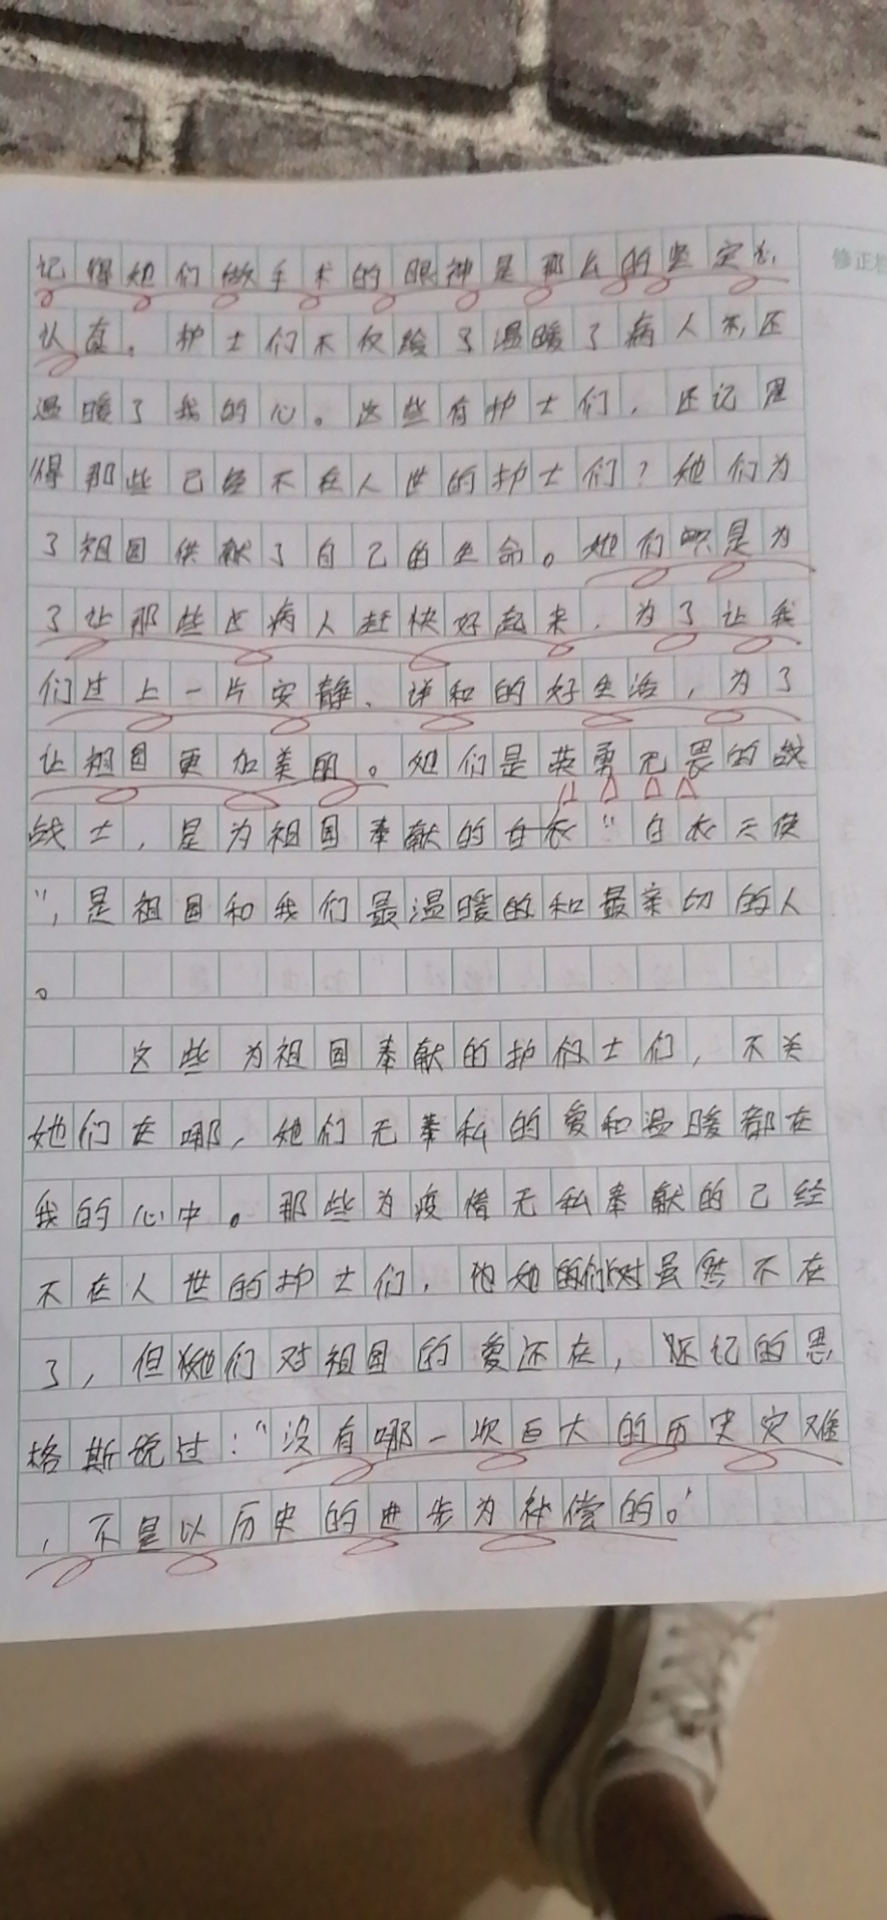 修正栏
记得她们做手术的眼神是那么的坚定、
认真。护士们不仅给了温暖了病人,还
温暖了我的心。这些有护士们,还记
得那些已经不在人世的护士们?她们为
了祖国供献了自己的生命。她们是为
了让那些病人赶快好起来,为了让我
们过上一片安静、详和的好生活,为了
让祖国更加美丽。她们是英勇无畏的战
战士,是为祖国奉献的白衣"白衣天使
",是祖国和我们最温暖的和最亲切的人
。
这些为祖国奉献的护士们,不关
她们在哪,她们无奉私的爱和温暖都在
我的心中。那些为疫情无私奉献的已经
不在人世的护士们,他她的们对虽然不在
了,但她们对祖国的爱还在,还记的恩
格斯说过:"没有哪一次巨大的历史灾难
,不是以历史的进步为补偿的。"